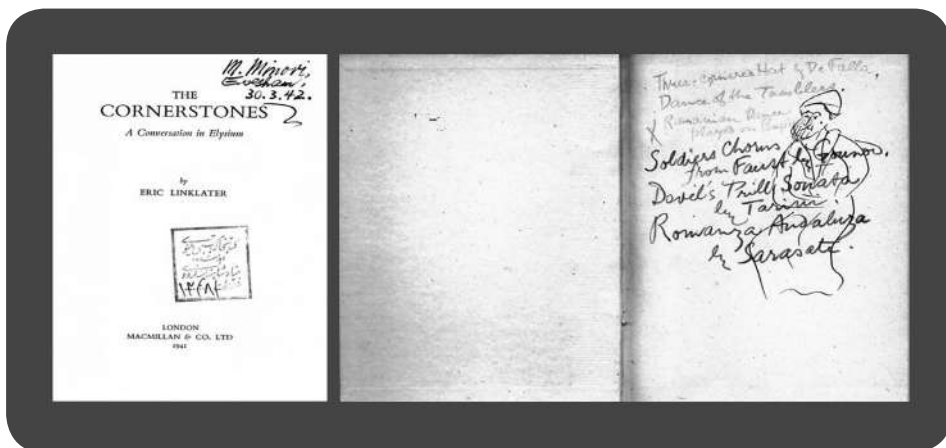 M. Minovi,
Evesham.
30.3.42.
THE
CORNERSTONES
A Conversation in Elysium
by
ERIC LINKLATER
۱۳۴۸۲
LONDON
MACMILLAN & CO. LTD
1941
Three-cornered Hat by De Falla,
Dance of the Tumblers
X Romanian Dance
played on
Soldiers Chorus
from Faust by Gounod.
Devil's Trill Sonata
by Tartini.
Romanza Andaluza
by Sarasate.